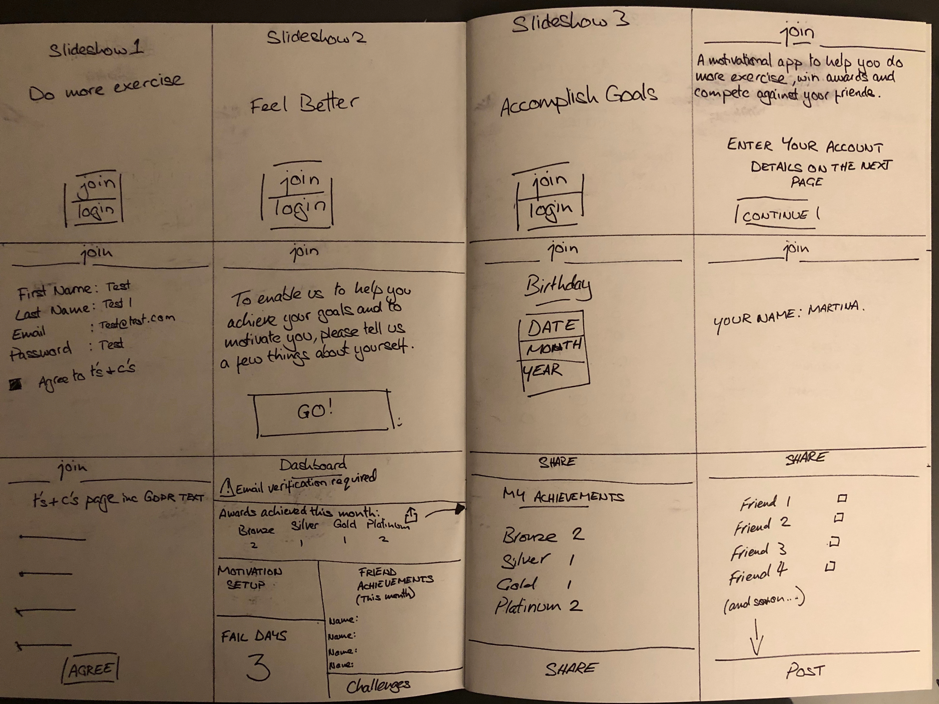 Slideshow 1
Do more exercise
join
login
Slideshow 2
Feel Better
join
login
Slideshow 3
Accomplish Goals
join
login
join
A motivational app to help you do
more exercise, win awards and
compete against your friends.
ENTER YOUR ACCOUNT
DETAILS ON THE NEXT
PAGE
CONTINUE
join
First Name: Test
Last Name: Test 1
Email : Test@test.com
Password : Test
Agree to t's + c's
join
To enable us to help you
achieve your goals and to
motivate you, please tell us
a few things about yourself.
GO!
join
Birthday
DATE
MONTH
YEAR
join
YOUR NAME: MARTINA.
join
t's + c's page inc GDPR TEXT
AGREE
Dashboard
! Email verification required
Awards achieved this month:
Bronze Silver Gold Platinum
2 1 1 2
MOTIVATION
SETUP
FAIL DAYS
3
FRIEND
ACHIEVEMENTS
(This month)
Name:
Name:
Name:
Name:
Challenges
SHARE
MY ACHIEVEMENTS
Bronze 2
Silver 1
Gold 1
Platinum 2
SHARE
SHARE
Friend 1
Friend 2
Friend 3
Friend 4
(and so on...)
POST